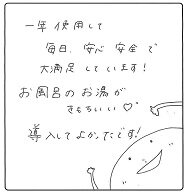 一年使用して
毎日、安心 安全で
大満足しています！
お風呂のお湯が
きもちいい♡
導入してよかったです！